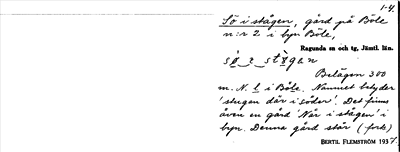 1-4.
Sö i stûgen, gård på Böle
n:r 2 i byn Böle,
Ragunda sn och tg, Jämtl. län.
Belägen 300
m. N. l i Böle. Namnet betyder
'stugan där i söder'. Det finns
även en gård 'När i stûgen' i
byn. Denna gård står (forts)
BERTIL FLEMSTRÖM 1937.